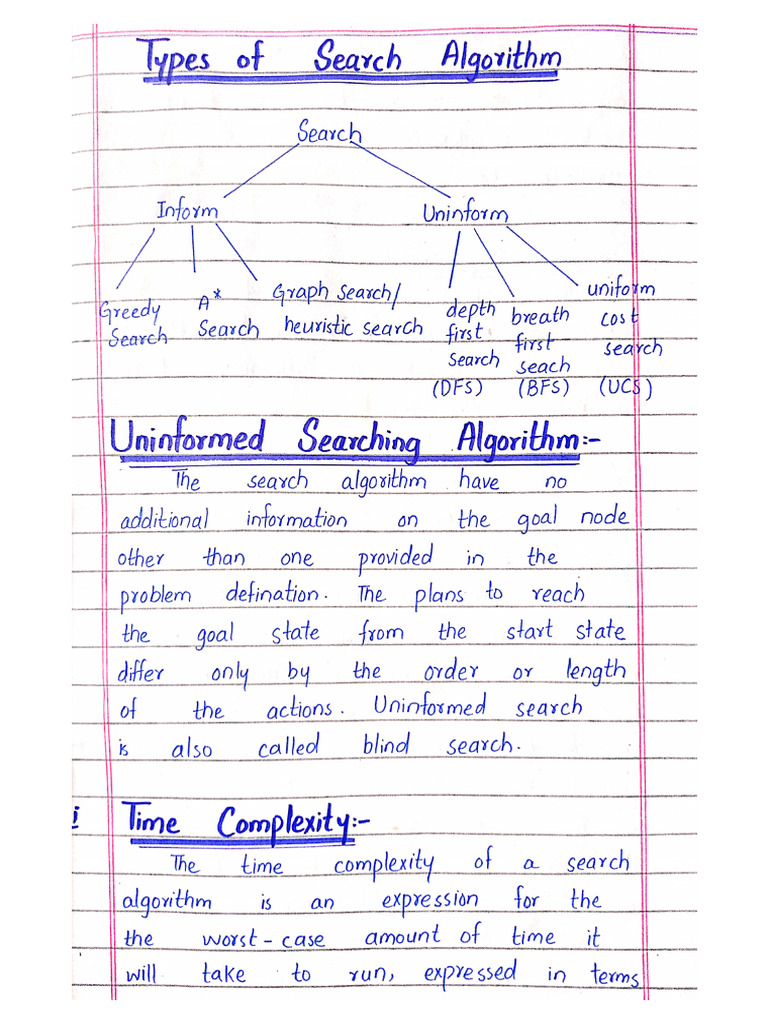 Types of Search Algorithm
Search
Inform Uninform
Greedy Search
A* Search
Graph search/
heuristic search
depth
first
search
(DFS)
breath
first
seach
(BFS)
uniform
cost
search
(UCS)
Uninformed Searching Algorithm:-
The search algorithm have no
additional information on the goal node
other than one provided in the
problem defination. The plans to reach
the goal state from the start state
differ only by the order or length
of the actions. Uninformed search
is also called blind search.
i Time Complexity:-
The time complexity of a search
algorithm is an expression for the
the worst-case amount of time it
will take to run, expressed in terms